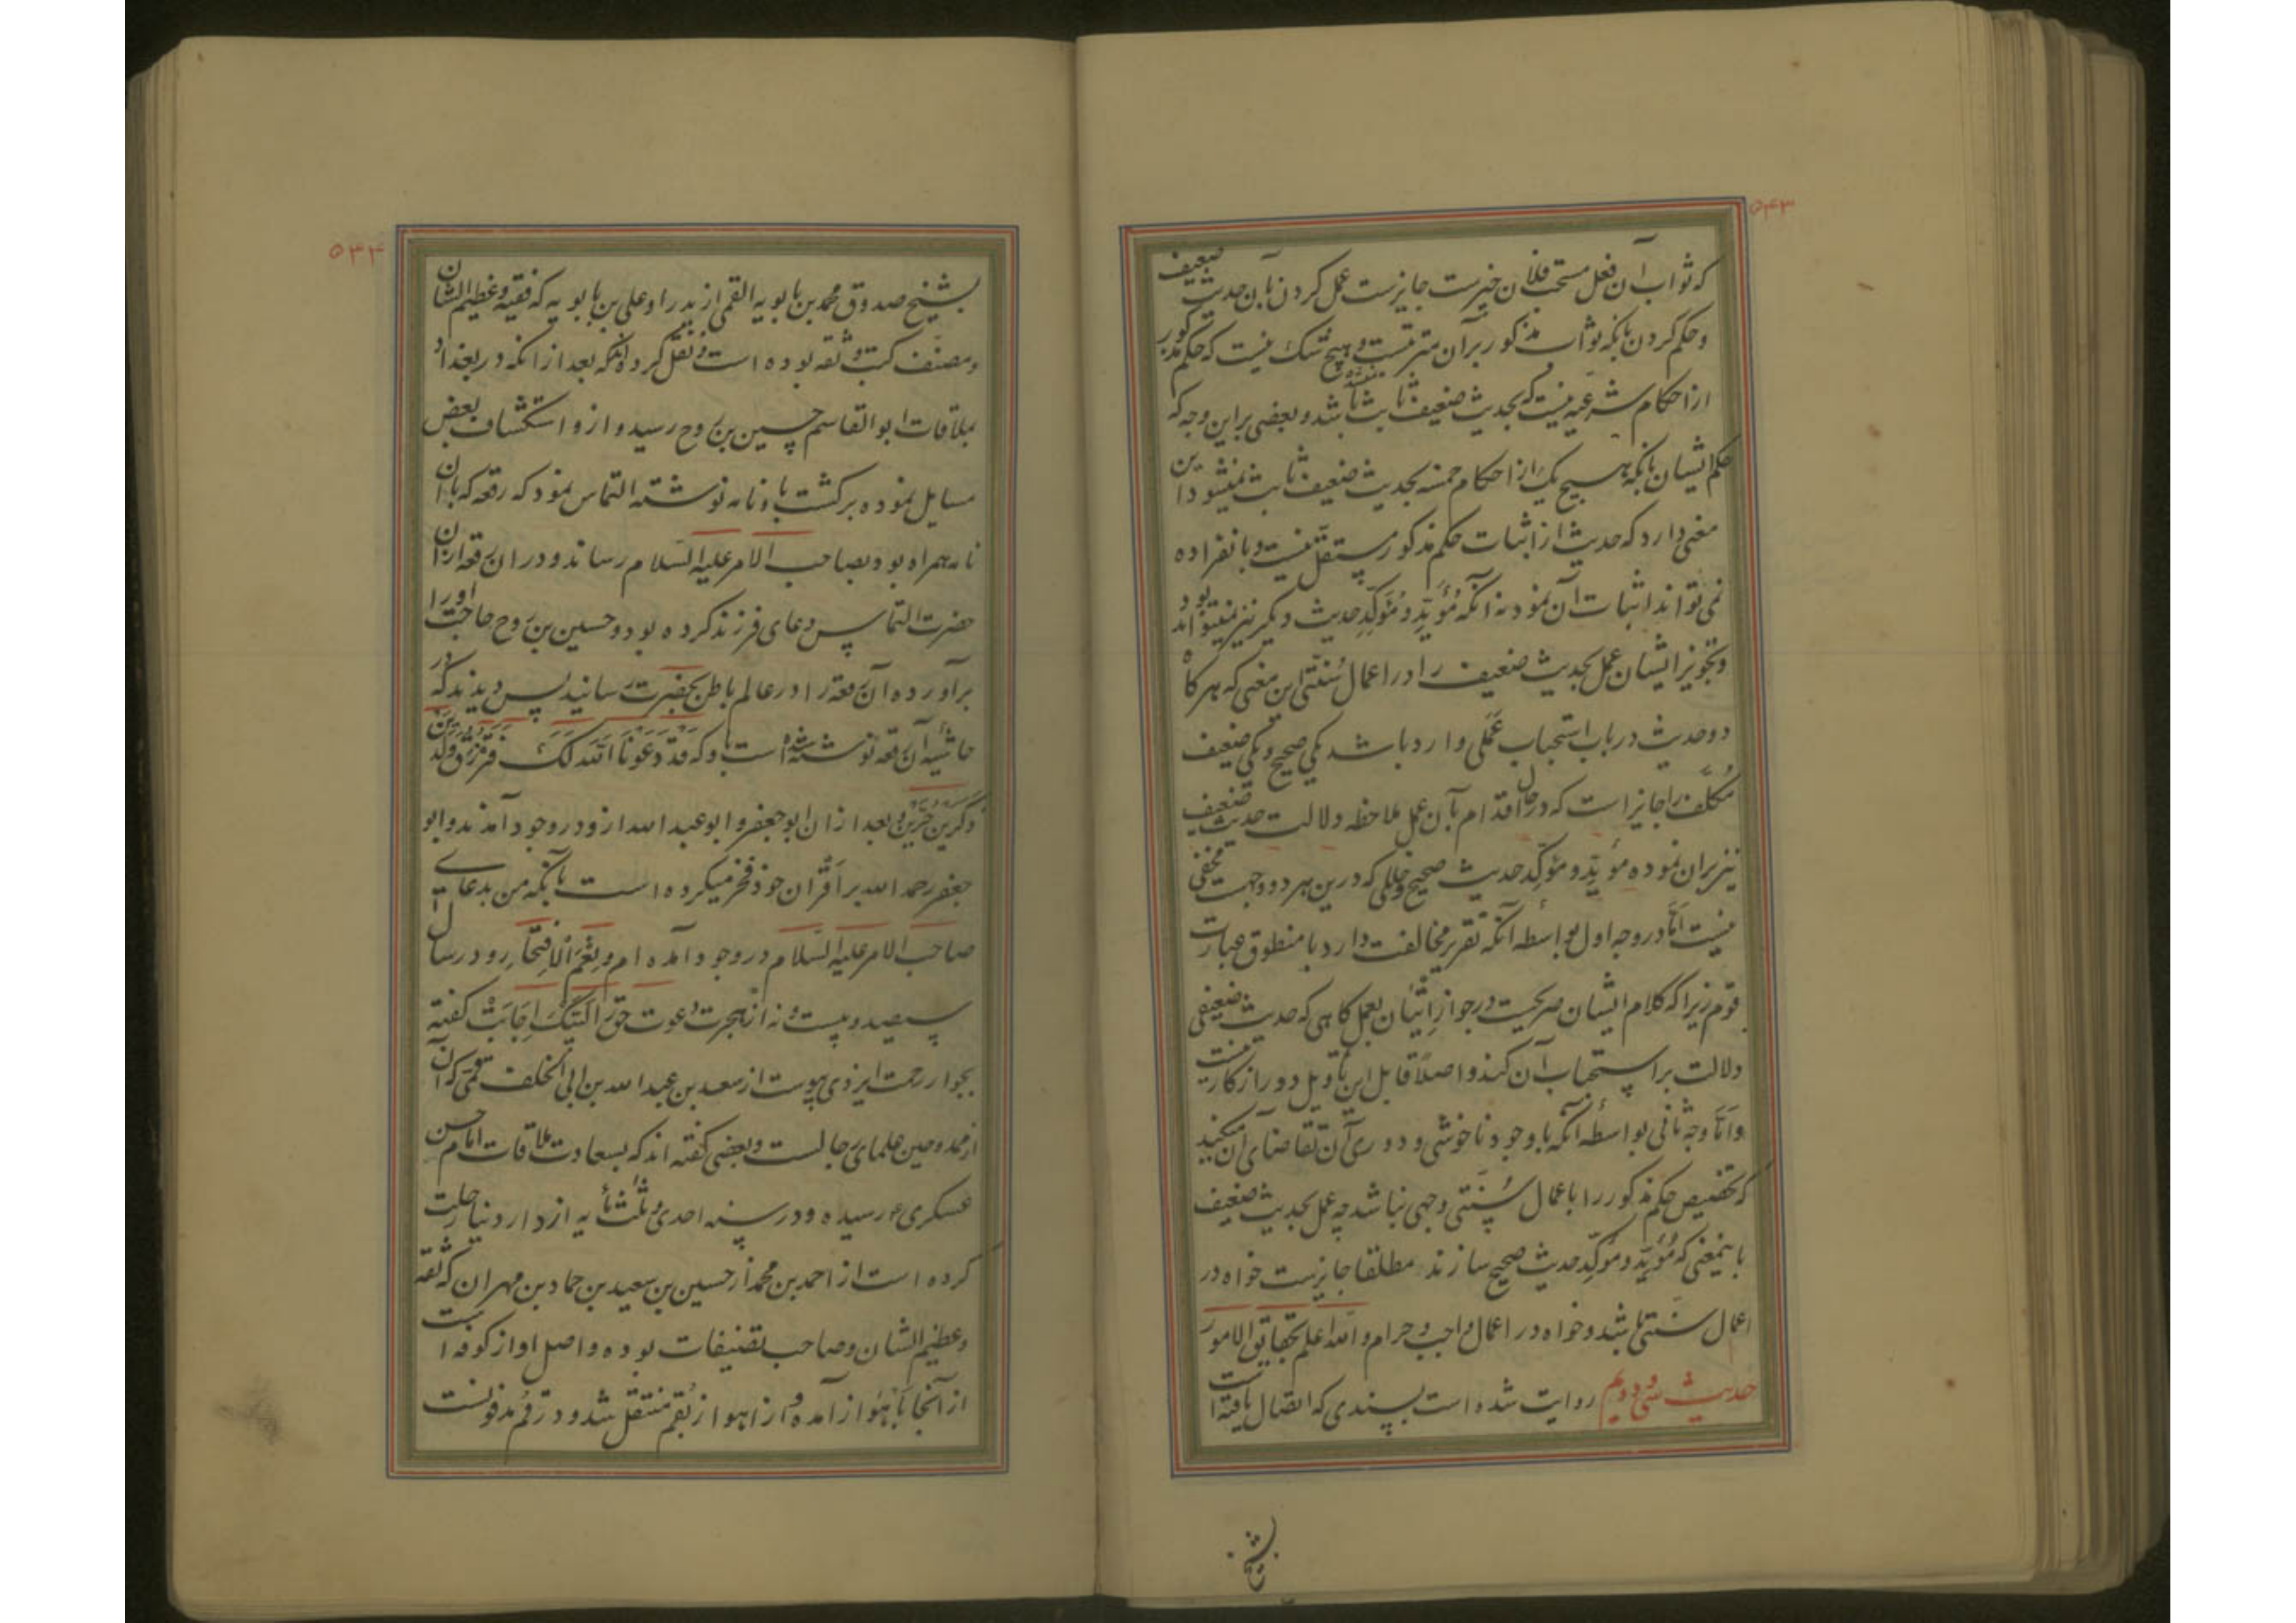 ۵۴۳
که ثواب آن فعل مستحب فلان خیرست جایزست عمل کردن بآن حدیث ضعیف
و حکم کردن بانکه ثواب مذکور برآن مترتبست و هیچ شک نیست که حکم مذکور
از احکام شرعیه نیست که بحدیث ضعیف ثابت نشده باشد و بعضی براین وجه که
حکم ایشان بانکه هیچ یک از احکام خمسه بحدیث ضعیف ثابت نمیشود این
معنی دارد که حدیث از اثبات حکم مذکور مستقل نیست و بانفراده
نمی تواند اثبات آن نمود نه آنکه مُؤَیِّد و مُؤَکِّدِ حدیث دیگر نیز نمیتواند بود
و تجویز ایشان عمل بحدیث ضعیف را در اعمال سُنّتی این معنی که هرگاه
دو حدیث در باب استحباب عَمَلی وارد باشد یکی صحیح و یکی ضعیف
مُکَلَّف را جایز است که در حال اقدام بآن عمل ملاحظه دلالت حدیث ضعیف
نیز بران نموده مؤیِّد و مؤکِّد حدیث صحیح و خللی که درین هر دو وجهت مخفی
نیست اَمّا در وجه اول بواسطه آنکه تقریر مخالفت دارد با منطوق عبارت
قوم زیرا که کلام ایشان صریحست در جواز اِتیان بعمل گاهی که حدیث ضعیفی
دلالت بر استحباب آن کند و اصلاً قابل این تاویل دور از کار نیست
و اَمّا وجه ثانی بواسطه آنکه با وجود ناخوشی و دوری آن تقاضای آن میکند
که تخصیص حکم مذکور را باعمال سُنّتی وجهی نباشد چه عمل بحدیث ضعیف
باینمعنی که مُؤَیِّد و مُؤَکِّد حدیث صحیح سازند مطلقا جایزست خواه در
اعمال سنّتی باشد و خواه در اعمال واجب و حرام و الله اعلم بحقایق الامور
حدیث سی و دویم روایت شده است بسندی که اتصال یافته است
بشیخ
۵۳۴
بشیخ صدوق محمد بن بابویه القمی از پدر او علی بن بابویه که فقیه و عظیم الشان
و مصنف کتب و ثقه بوده است و نقل کرده اند که بعد از انکه در بغداد
بملاقات ابوالقاسم حسین بن روح رسید و ازو استکشاف بعض
مسایل نموده برگشت باو نامه نوشته التماس نمود که رقعه که با آن
نامه همراه بود بصاحب الامر علیه السلام رساند و در ان رقعه ازان
حضرت التماس دعای فرزند کرده بود و حسین بن روح حاجت او را
برآورده آن رقعه را در عالم باطن بحضرت رسانید پس دیدند که در
حاشیه آن رقعه نوشته شده است باو که قَدْ دَعَوْنَا اللهَ لَکَ فَتُرْزَقُ وَلَدَیْنِ
ذَکَرَیْنِ خَیِّرَیْنِ و بعد ازان ابوجعفر و ابوعبدالله ازو در وجود آمدند و ابو
جعفر رحمه الله بر اَقران خود فخر میکرده است بآنکه من بدعای
صاحب الامر علیه السلام در وجود آمده ام و نِعْمَ الاِفْتِخار و در سال
سیصد و بیست و نه از هجرت دعوت حق را لَبَّیْک اِجابت گفته
بجوار رحمت ایزدی پیوست از سعد بن عبدالله بن ابی الخلف قمی که آن
از ممدوحین علمای رجالست و بعضی گفته اند که بسعادت ملاقات امام حسن
عسکری ع رسیده و در سنه احدی و ثلثمأیه از دار دنیا رحلت
کرده است از احمد بن محمد از حسین بن سعید بن حماد بن مهران که ثقه
و عظیم الشان و صاحب تصنیفات بوده و اصل او از کوفه است
از آنجا باَهواز آمده و از اهواز بقم منتقل شد و در قم مدفونست